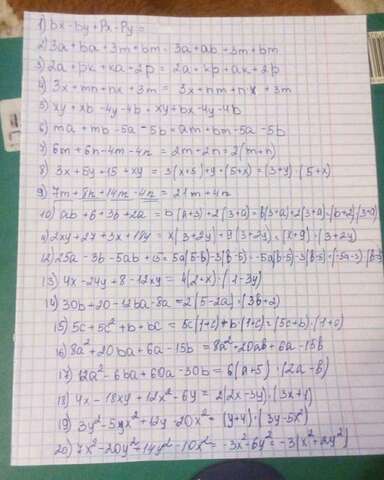 1) bx - by + Px - Py =
2) 3a + ba + 3m + bm = 3a + ab + 3m + bm
3) 2a + pk + ka + 2p = 2a + kp + ak + 2p
4) 3x + mn + nx + 3m = 3x + nm + nx + 3m
5) xy + xb - 4y - 4b = xy + bx - 4y - 4b
6) ma + mb - 5a - 5b = am + bm - 5a - 5b
7) 6m + 6n - 4m - 4n = 2m + 2n = 2(m+n)
8) 3x + 5y + 15 + xy = 3(x+5) + y·(5+x) = (3+y)·(5+x)
9) 7m + 8n + 14m - 4n = 21m + 4n
10) ab + 6 + 3b + 2a = b(a+3) + 2(3+a) = b(3+a) + 2(3+a) = (b+2)(3+a)
11) 2xy + 27 + 3x + 18y = x(3+2y) + 9(3+2y) = (x+9)·(3+2y)
12) 25a - 3b - 5ab + 15 = 5a(5-b) - 3(b-5) = -5a(b-5) - 3(b-5) = (-5a-3)(b-5)
13) 4x - 24y + 8 - 12xy = 4(2+x)·(1-3y)
14) 30b + 20 - 12ba - 8a = 2(5-2a)·(3b+2)
15) 5c + 5c² + b + bc = 5c(1+c) + b(1+c) = (5c+b)·(1+c)
16) 8a² + 20ba + 6a - 15b = 8a² + 20ab + 6a - 15b
17) 12a² - 6ba + 60a - 30b = 6(a+5)·(2a-b)
18) 4x - 18xy + 12x² - 6y = 2(2x-3y)·(3x+1)
19) 3y² - 5yx² + 12y - 20x² = (y+4)·(3y-5x²)
20) 7x² - 20y² + 14y² - 10x² = -3x² - 6y² = -3(x²+2y²)